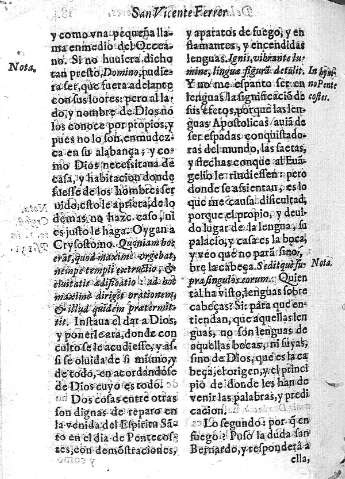 San Vicente Ferrer
y como vna pequeña lla-
ma en medio del Occea-
no. Si no huuiera dicho
Nota.
tan presto, Domino, pudie-
ra ser, que fuera adelante
con sus loores: pero al la-
do, y nombre de Dios no
los conoce por propios, y
pues no lo son, enmudez-
ca en su alabança; y co-
mo Dios necessitaua de
casa, y habitacion donde
fuesse de los hombres ser
uido; esto le aprieta, de lo
demas no haze caso, ni
es justo le haga. Oygan a
Crysostomo. Quoniam hoc
erat, quod maximè vrgebat,
nempe templi extructio, &
ciuitatis ædificatio: ad hoc
maximè dirigit orationem,
& illud quidem prætermit-
tit. Instaua el dar a Dios,
y ponerle ara, donde con
culto se le acudiesse, y as-
si se oluida de si mismo, y
de todo, en acordandose
de Dios cuyo es todo.
Dos cosas entre otras
son dignas de reparo en
la venida del Espiritu Sã-
to en el dia de Pentecos-
tes, con demostraciones,
y aparatos de fuego, y en
flamantes, y encendidas
lenguas. Ignis, vibrante lu-
mine, linguæ figurã detulit.
In hym-
no Pente
costes.
Y no me espanto ser en
lenguas la significació de
sus efetos, porque las len-
guas Apostolicas auiã de
ser espadas conquistado-
ras del mundo, las saetas,
y flechas con que al Euã-
gelio le rindiessen: pero
donde se asientan, es lo
que me causa dificultad,
porque el propio, y deui-
do lugar de la lengua, su
palacio, y casa es la boca,
y veo que no para sino so-
bre la cabeça. Sedit que su-
Nota.
pra singulos eorum. Quien
tal ha visto, lenguas sobre
cabeças: Si: para que en-
tiendan, que aquellas len-
guas, no son lenguas de
aquellas bocas, ni suyas,
sino de Dios, que es la ca-
beça, el origen, y el princi-
pio de donde les han de
venir las palabras, y predi
cacion.
Lo segundo: por q̃ en
fuego: Puso la duda san
Bernardo, y responderà a
ella,